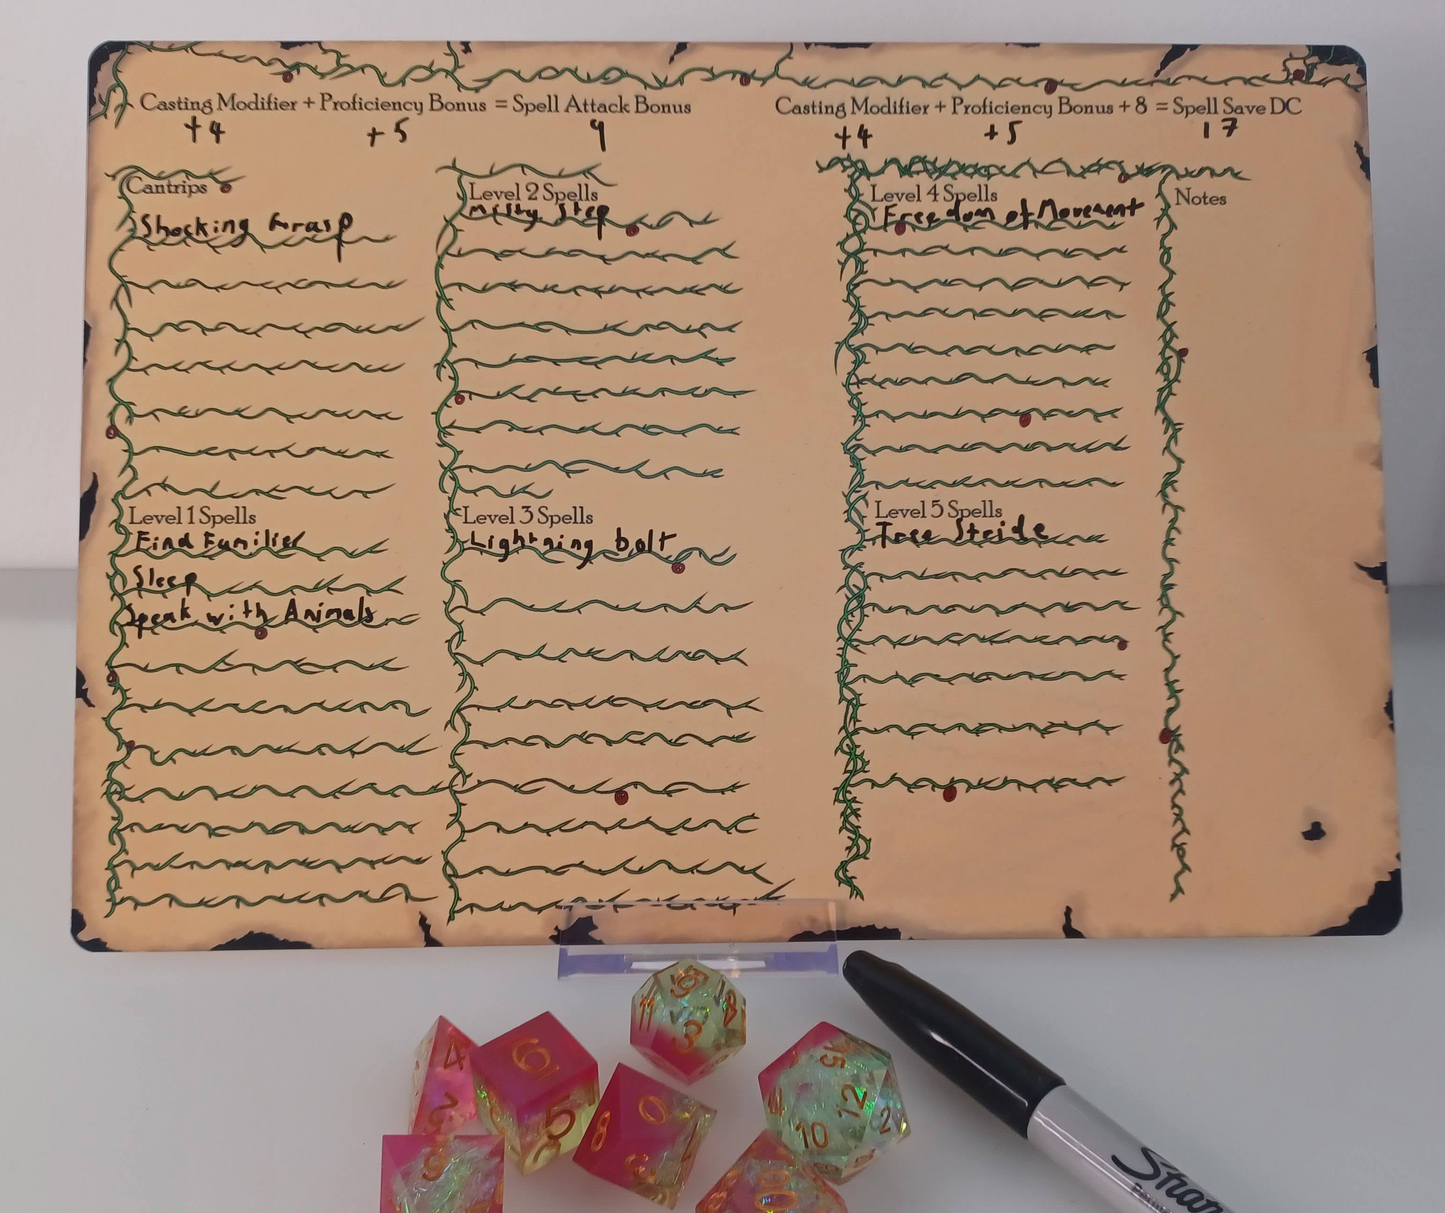 Casting Modifier + Proficiency Bonus = Spell Attack Bonus
+4 +5 9
Casting Modifier + Proficiency Bonus + 8 = Spell Save DC
+4 +5 17
Cantrips
Shocking Grasp
Level 1 Spells
Find Familier
Sleep
Speak with Animals
Level 2 Spells
Misty Step
Level 3 Spells
Lightning bolt
Level 4 Spells
Freedom of Movement
Level 5 Spells
Tree Stride
Notes
11
3
4
6
5
8
0
12
10
2